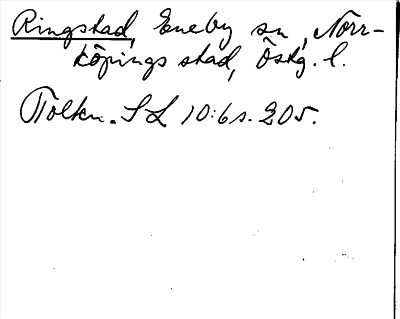 Ringstad, Eneby sn, Norr-
köpings stad, Östg. l.
Tolkn. SL 10:6 s. 205.